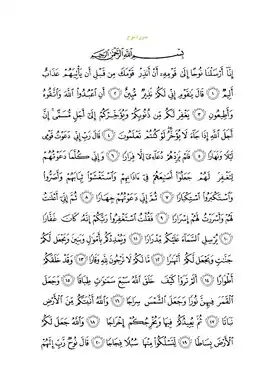 سورة نوح
بِسْمِ اللَّهِ الرَّحْمَٰنِ الرَّحِيمِ
إِنَّا أَرْسَلْنَا نُوحًا إِلَىٰ قَوْمِهِ أَنْ أَنذِرْ قَوْمَكَ مِن قَبْلِ أَن يَأْتِيَهُمْ عَذَابٌ
أَلِيمٌ ١ قَالَ يَٰقَوْمِ إِنِّي لَكُمْ نَذِيرٌ مُّبِينٌ ٢ أَنِ اعْبُدُوا اللَّهَ وَاتَّقُوهُ
وَأَطِيعُونِ ٣ يَغْفِرْ لَكُم مِّن ذُنُوبِكُمْ وَيُؤَخِّرْكُمْ إِلَىٰ أَجَلٍ مُّسَمًّى إِنَّ
أَجَلَ اللَّهِ إِذَا جَاءَ لَا يُؤَخَّرُ لَوْ كُنتُمْ تَعْلَمُونَ ٤ قَالَ رَبِّ إِنِّي دَعَوْتُ قَوْمِي
لَيْلًا وَنَهَارًا ٥ فَلَمْ يَزِدْهُمْ دُعَاءِي إِلَّا فِرَارًا ٦ وَإِنِّي كُلَّمَا دَعَوْتُهُمْ
لِتَغْفِرَ لَهُمْ جَعَلُوا أَصَٰبِعَهُمْ فِي ءَاذَانِهِمْ وَاسْتَغْشَوْا ثِيَابَهُمْ وَأَصَرُّوا
وَاسْتَكْبَرُوا اسْتِكْبَارًا ٧ ثُمَّ إِنِّي دَعَوْتُهُمْ جِهَارًا ٨ ثُمَّ إِنِّي أَعْلَنتُ
لَهُمْ وَأَسْرَرْتُ لَهُمْ إِسْرَارًا ٩ فَقُلْتُ اسْتَغْفِرُوا رَبَّكُمْ إِنَّهُ كَانَ غَفَّارًا
١٠ يُرْسِلِ السَّمَاءَ عَلَيْكُم مِّدْرَارًا ١١ وَيُمْدِدْكُم بِأَمْوَٰلٍ وَبَنِينَ وَيَجْعَل لَّكُمْ
جَنَّٰتٍ وَيَجْعَل لَّكُمْ أَنْهَٰرًا ١٢ مَّا لَكُمْ لَا تَرْجُونَ لِلَّهِ وَقَارًا ١٣ وَقَدْ خَلَقَكُمْ
أَطْوَارًا ١٤ أَلَمْ تَرَوْا كَيْفَ خَلَقَ اللَّهُ سَبْعَ سَمَٰوَٰتٍ طِبَاقًا ١٥ وَجَعَلَ
الْقَمَرَ فِيهِنَّ نُورًا وَجَعَلَ الشَّمْسَ سِرَاجًا ١٦ وَاللَّهُ أَنبَتَكُم مِّنَ الْأَرْضِ
نَبَاتًا ١٧ ثُمَّ يُعِيدُكُمْ فِيهَا وَيُخْرِجُكُمْ إِخْرَاجًا ١٨ وَاللَّهُ جَعَلَ لَكُمُ
الْأَرْضَ بِسَاطًا ١٩ لِّتَسْلُكُوا مِنْهَا سُبُلًا فِجَاجًا ٢٠ قَالَ نُوحٌ رَّبِّ إِنَّهُمْ